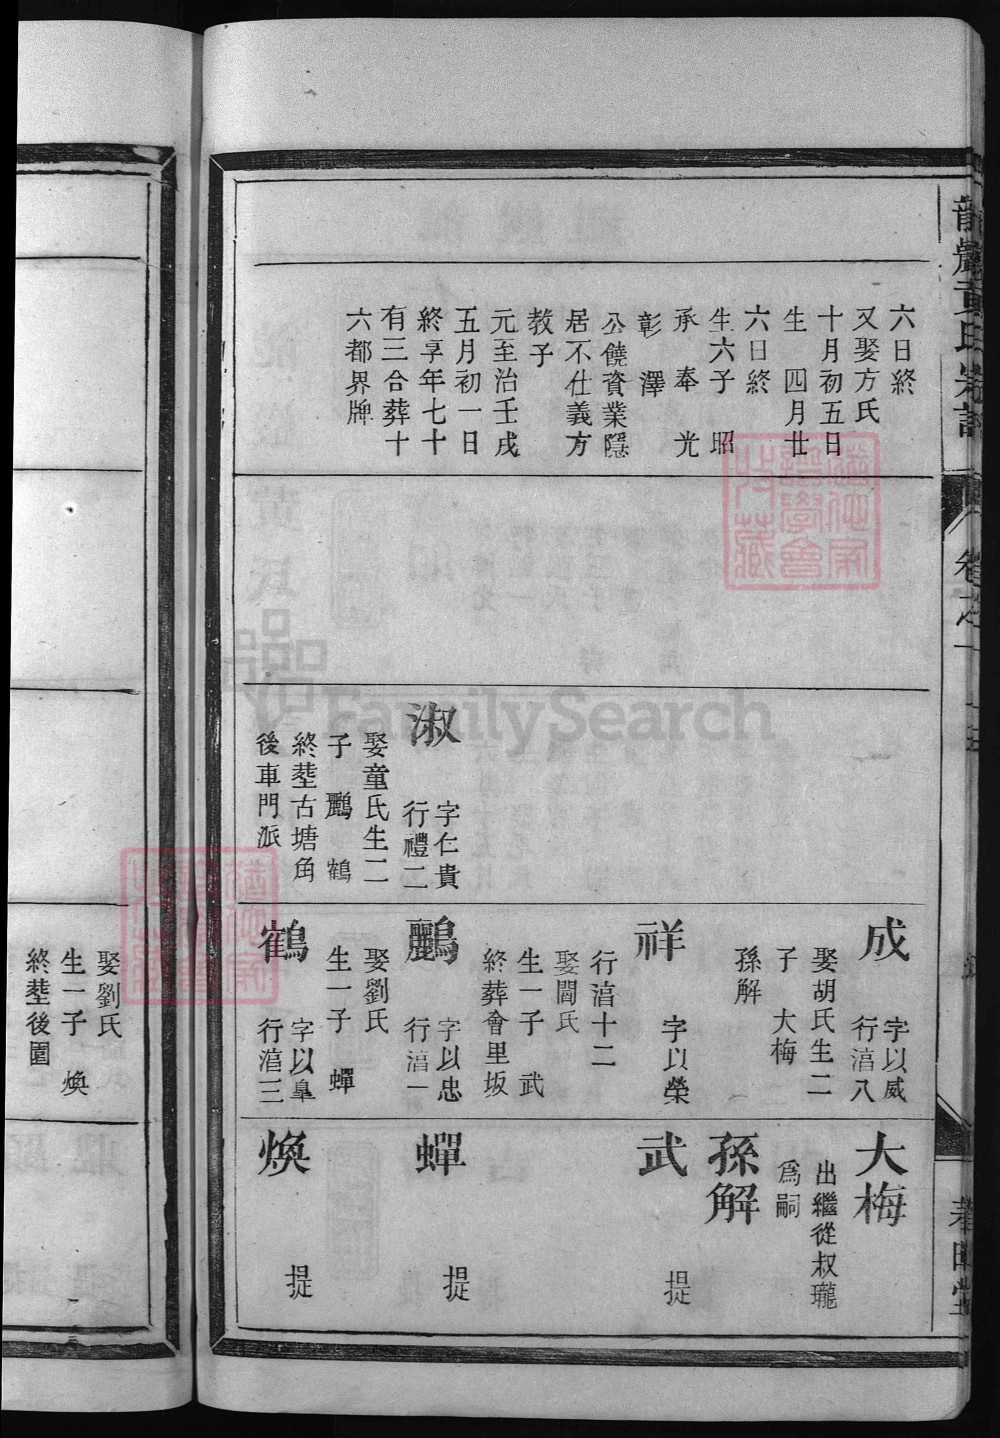 六日終
又娶方氏
十月初五日
生 四月廿
六日終
生六子 昭
承 奉 光
彰 澤
公饒資業隱
居不仕義方
教子
元至治壬戌
五月初一日
終享年七十
有三合葬十
六都界牌
淑
字仁貴
行禮二
娶童氏生二
子 鸝 鶴
終塟古塘角
後車門派
成
字以威
行湻八
娶胡氏生二
子 大梅
孫解
祥
字以榮
行湻十二
娶閻氏
生一子 武
終葬會里坂
鸝
字以忠
行湻一
娶劉氏
生一子 蟬
鶴
字以臯
行湻三
大梅
出繼從叔瓏
爲嗣
孫解
武
提
蟬
提
煥
提
娶劉氏
生一子 煥
終塟後園
FamilySearch